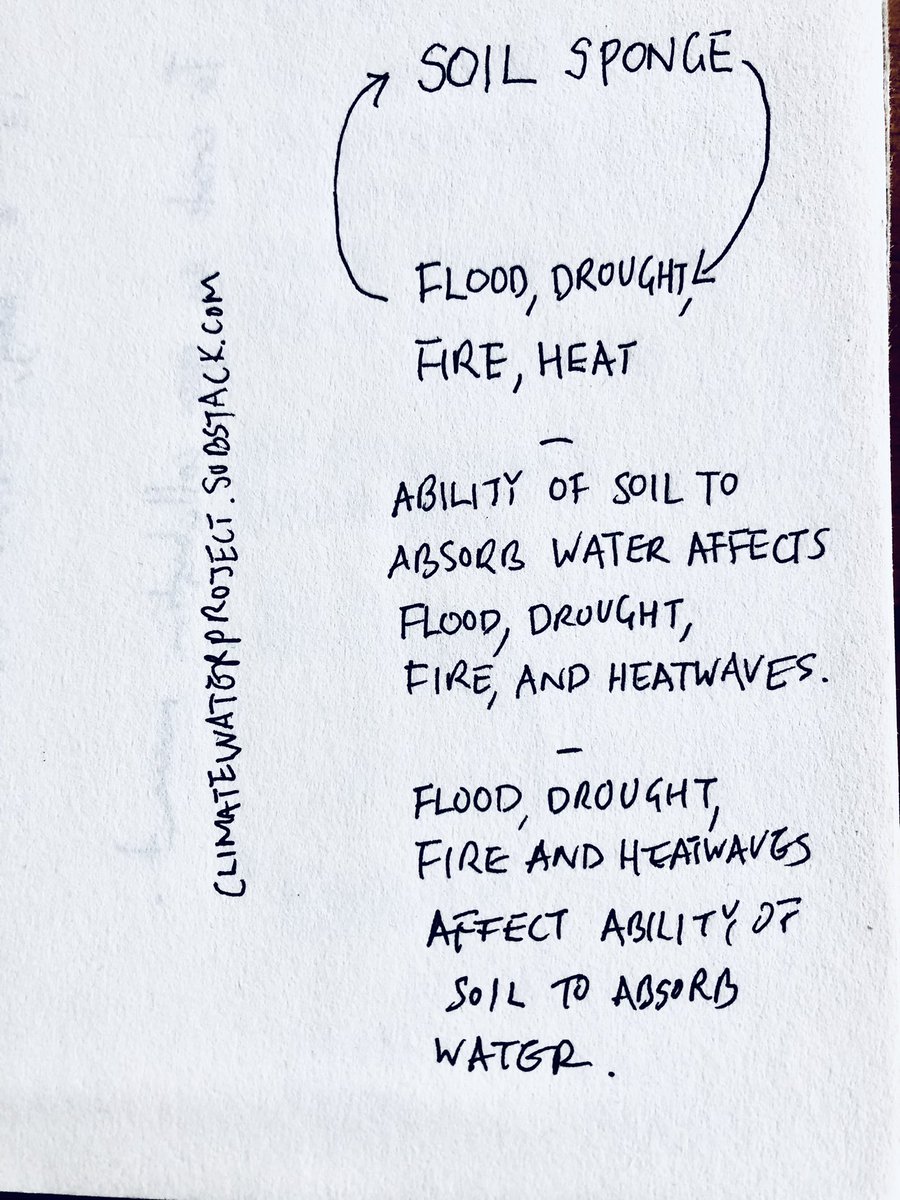 SOIL SPONGE
FLOOD, DROUGHT,
FIRE, HEAT
–
ABILITY OF SOIL TO
ABSORB WATER AFFECTS
FLOOD, DROUGHT,
FIRE, AND HEATWAVES.
–
FLOOD, DROUGHT,
FIRE AND HEATWAVES
AFFECT ABILITY OF
SOIL TO ABSORB
WATER.
CLIMATEWATERPROJECT.SUBSTACK.COM